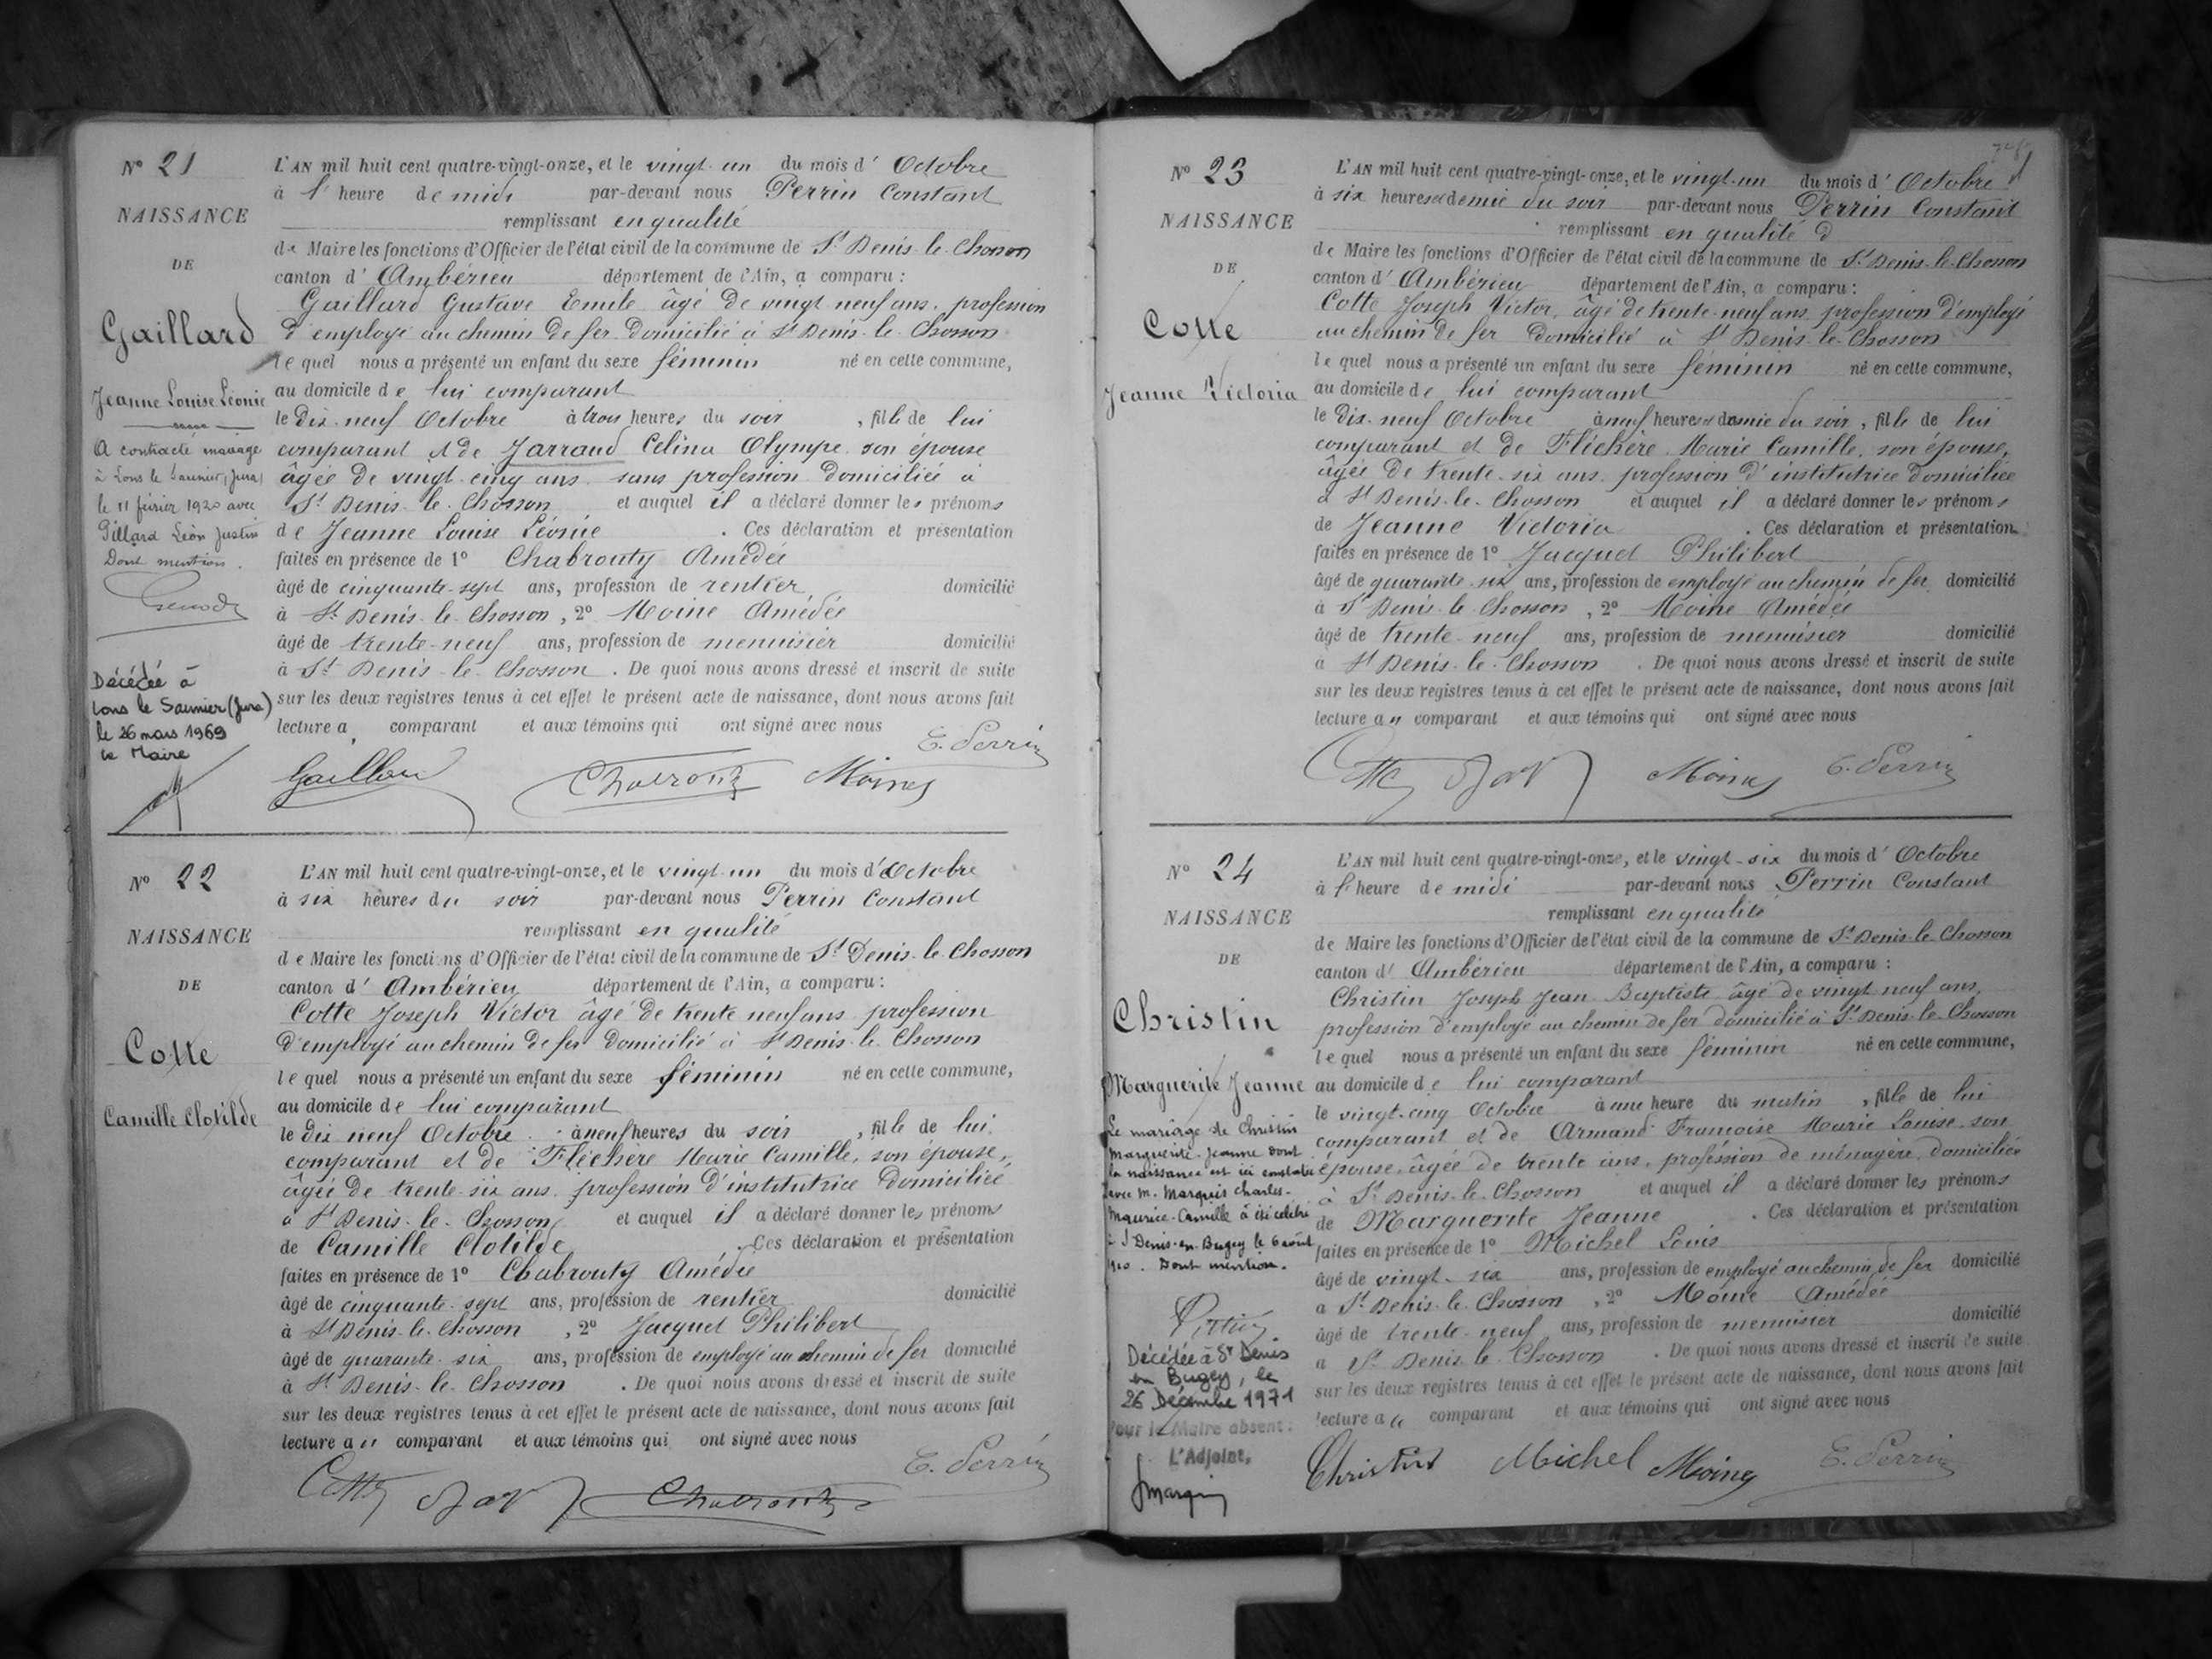 N° 21
NAISSANCE
DE
Gaillard
Jeanne Louise Léonie
A contracté mariage
à Lons le Saunier (Jura)
le 11 février 1920 avec
Pillard Léon Justin
Dont mention.
Décédée à
Lons le Saunier (Jura)
le 26 mars 1969
Le Maire
L'AN mil huit cent quatre-vingt-onze, et le vingt-un du mois d'Octobre
à l' heure de midi par-devant nous Perrin Constant
remplissant en qualité
de Maire les fonctions d'Officier de l'état civil de la commune de St Denis-le-Chosson
canton d'Ambérieu département de l'Ain, a comparu :
Gaillard Gustave Emile âgé de vingt neuf ans, profession
d'employé au chemin de fer domicilié à St Denis-le-Chosson
lequel nous a présenté un enfant du sexe féminin né en cette commune,
au domicile de lui comparant
le dix-neuf Octobre à trois heures du soir, fille de lui
comparant et de Jarraud Celina Olympe son épouse
âgée de vingt-cinq ans sans profession domiciliée à
St Denis-le-Chosson et auquel il a déclaré donner les prénoms
de Jeanne Louise Léonie. Ces déclaration et présentation
faites en présence de 1° Chabrouty Amédée
âgé de cinquante-sept ans, profession de rentier domicilié
à St Denis-le-Chosson, 2° Moine Amédée
âgé de trente-neuf ans, profession de menuisier domicilié
à St Denis-le-Chosson. De quoi nous avons dressé et inscrit de suite
sur les deux registres tenus à cet effet le présent acte de naissance, dont nous avons fait
lecture a comparant et aux témoins qui ont signé avec nous
E. Perrin
Gaillard Chabrouty Moine
N° 22
NAISSANCE
DE
Cotte
Camille Clotilde
L'AN mil huit cent quatre-vingt-onze, et le vingt-un du mois d'Octobre
à six heures du soir par-devant nous Perrin Constant
remplissant en qualité
de Maire les fonctions d'Officier de l'état civil de la commune de St Denis-le-Chosson
canton d'Ambérieu département de l'Ain, a comparu :
Cotte Joseph Victor âgé de trente neuf ans profession
d'employé au chemin de fer domicilié à St Denis-le-Chosson
lequel nous a présenté un enfant du sexe féminin né en cette commune,
au domicile de lui comparant
le dix neuf Octobre à neuf heures du soir, fille de lui
comparant et de Fléchère Marie Camille, son épouse,
âgée de trente-six ans, profession d'institutrice domiciliée
à St Denis-le-Chosson et auquel il a déclaré donner les prénoms
de Camille Clotilde. Ces déclaration et présentation
faites en présence de 1° Chabrouty Amédée
âgé de cinquante-sept ans, profession de rentier domicilié
à St Denis-le-Chosson, 2° Jacquet Philibert
âgé de quarante-six ans, profession de employé au chemin de fer domicilié
à St Denis-le-Chosson. De quoi nous avons dressé et inscrit de suite
sur les deux registres tenus à cet effet le présent acte de naissance, dont nous avons fait
lecture a u comparant et aux témoins qui ont signé avec nous
E. Perrin
Cotte Chabrouty
N° 23
NAISSANCE
DE
Cotte
Jeanne Victoria
L'AN mil huit cent quatre-vingt-onze, et le vingt-un du mois d'Octobre
à six heures et demie du soir par-devant nous Perrin Constant
remplissant en qualité d
de Maire les fonctions d'Officier de l'état civil de la commune de St Denis-le-Chosson
canton d'Ambérieu département de l'Ain, a comparu :
Cotte Joseph Victor, âgé de trente-neuf ans, profession d'employé
au chemin de fer domicilié à St Denis-le-Chosson
lequel nous a présenté un enfant du sexe féminin né en cette commune,
au domicile de lui comparant
le dix-neuf Octobre à neuf heures et demie du soir, fille de lui
comparant et de Fléchère Marie Camille, son épouse,
âgée de trente-six ans, profession d'institutrice domiciliée
à St Denis-le-Chosson et auquel il a déclaré donner les prénoms
de Jeanne Victoria. Ces déclaration et présentation
faites en présence de 1° Jacquet Philibert
âgé de quarante-six ans, profession de employé au chemin de fer domicilié
à St Denis-le-Chosson, 2° Moine Amédée
âgé de trente-neuf ans, profession de menuisier domicilié
à St Denis-le-Chosson. De quoi nous avons dressé et inscrit de suite
sur les deux registres tenus à cet effet le présent acte de naissance, dont nous avons fait
lecture a u comparant et aux témoins qui ont signé avec nous
Cotte Moine E. Perrin
N° 24
NAISSANCE
DE
Christin
Marguerite Jeanne
Le mariage de Christin
Marguerite-Jeanne dont
la naissance est ici constatée
avec M. Marquis Charles-
Maurice-Camille a été célébré
à St Denis-en-Bugey le 6 août
Dont mention.
Décédée à St Denis
en Bugey, le
26 Décembre 1971
Pour le Maire absent :
L'Adjoint,
L'AN mil huit cent quatre-vingt-onze, et le vingt-six du mois d'Octobre
à l' heure de midi par-devant nous Perrin Constant
remplissant en qualité
de Maire les fonctions d'Officier de l'état civil de la commune de St Denis-le-Chosson
canton d'Ambérieu département de l'Ain, a comparu :
Christin Joseph Jean Baptiste âgé de vingt neuf ans,
profession d'employé au chemin de fer domicilié à St Denis-le-Chosson
lequel nous a présenté un enfant du sexe féminin né en cette commune,
au domicile de lui comparant
le vingt-cinq Octobre à une heure du matin, fille de lui
comparant et de Armand Françoise Marie Louise son
épouse, âgée de trente ans, profession de ménagère, domiciliée
à St Denis-le-Chosson et auquel il a déclaré donner les prénoms
de Marguerite Jeanne. Ces déclaration et présentation
faites en présence de 1° Michel Louis
âgé de vingt-six ans, profession de employé au chemin de fer domicilié
a St Denis-le-Chosson, 2° Moine Amédée
âgé de trente-neuf ans, profession de menuisier domicilié
a St Denis-le-Chosson. De quoi nous avons dressé et inscrit de suite
sur les deux registres tenus à cet effet le présent acte de naissance, dont nous avons fait
lecture a u comparant et aux témoins qui ont signé avec nous
Christin Michel Moine E. Perrin